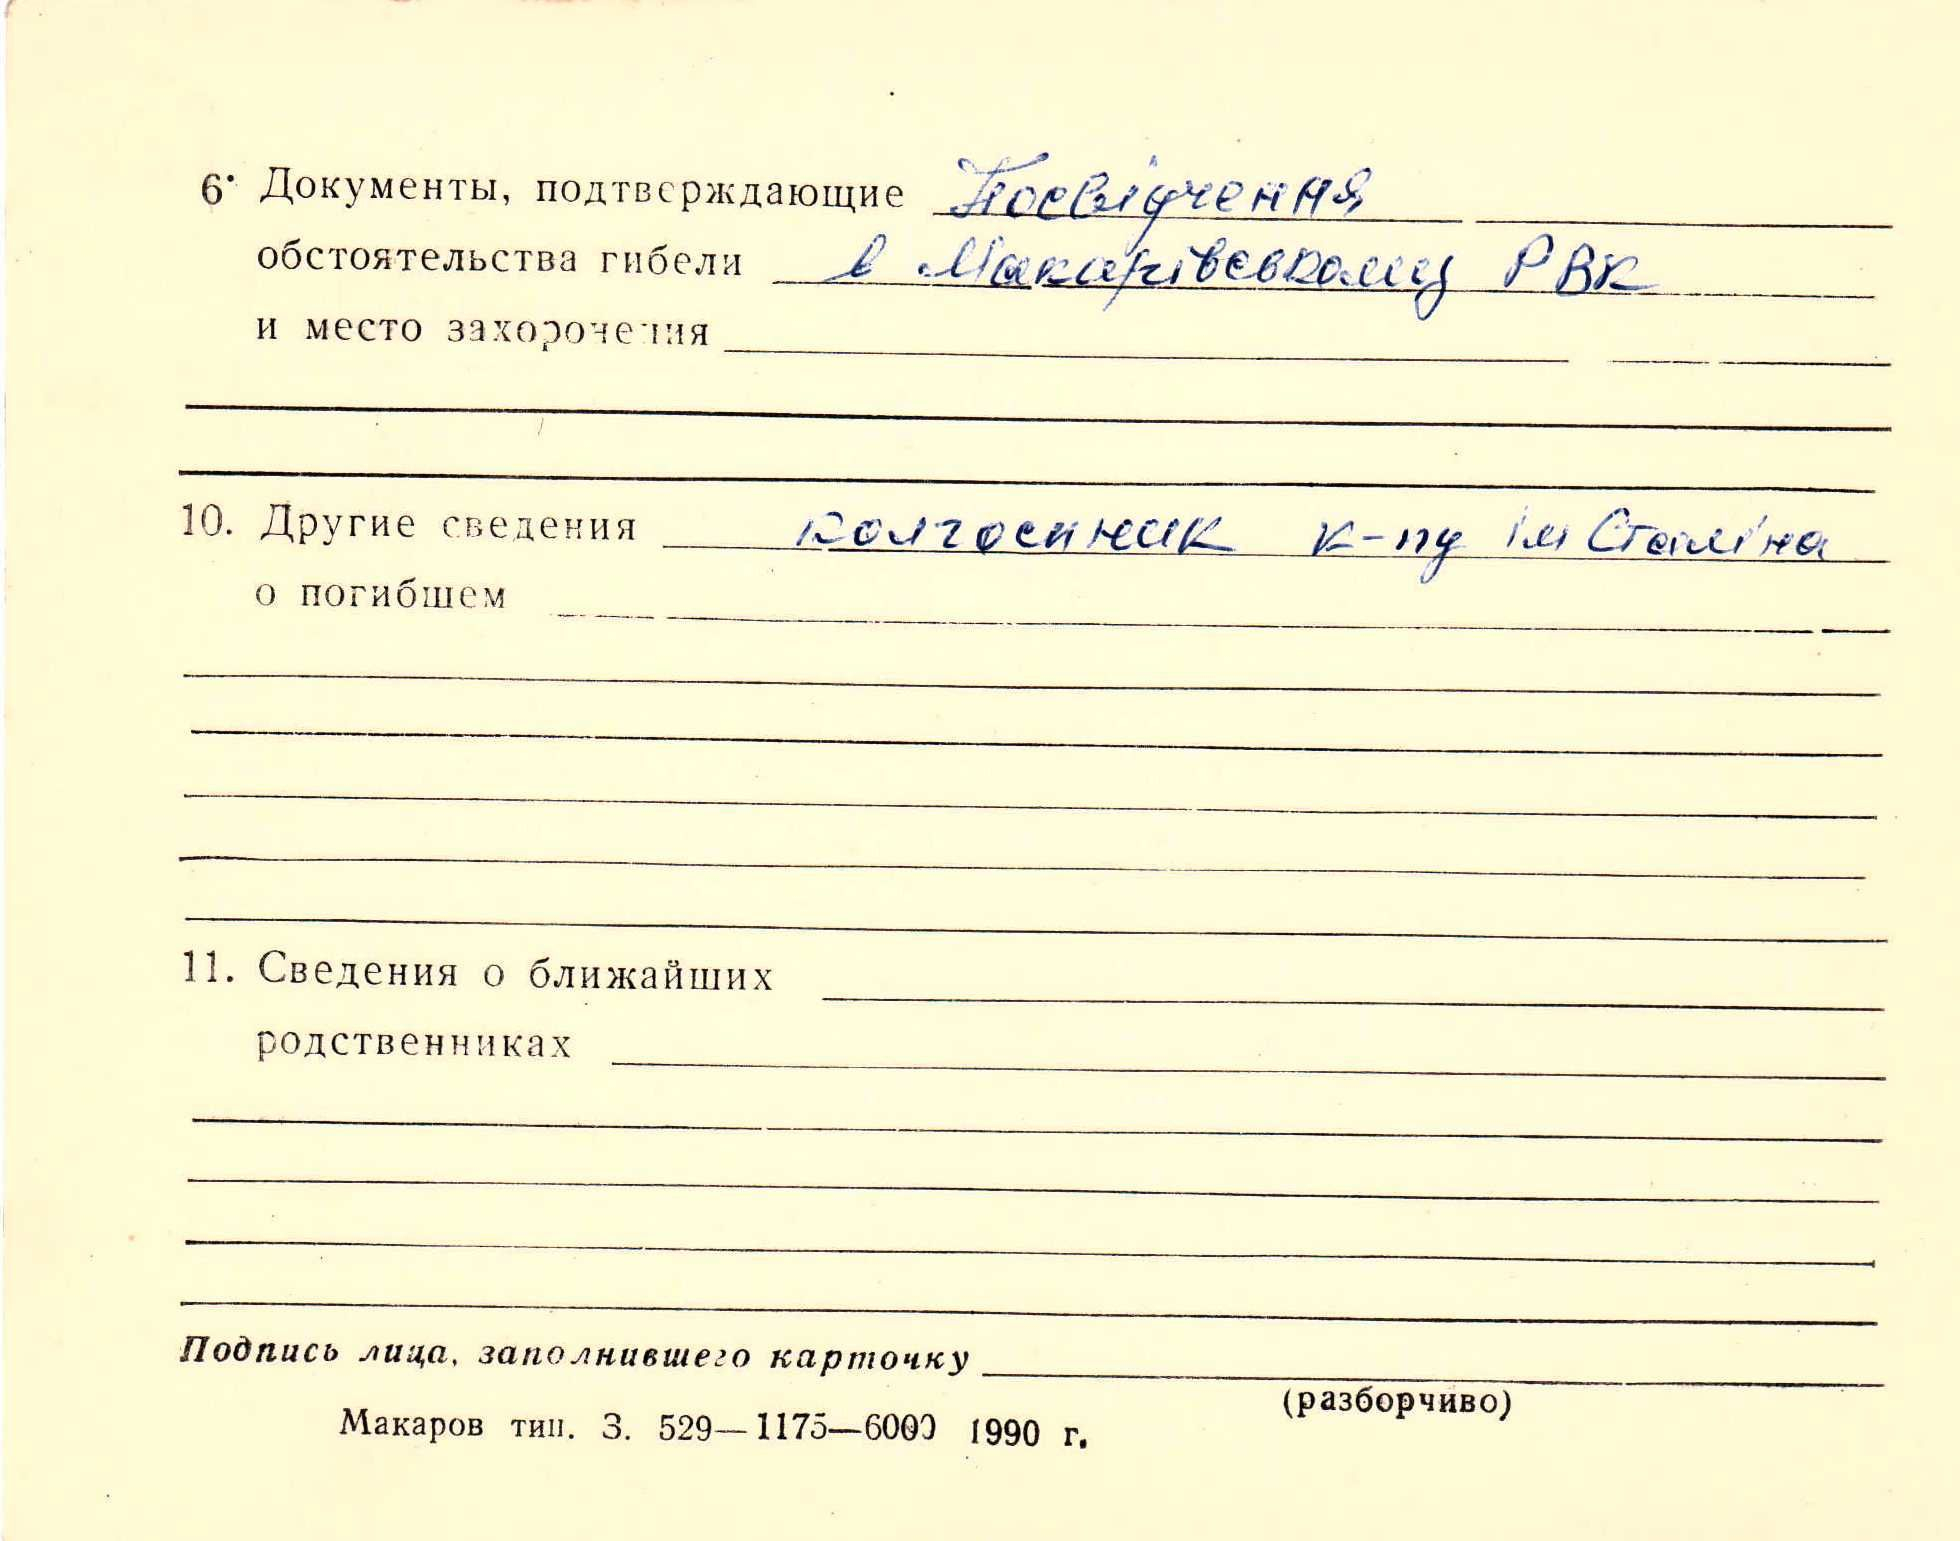 6. Документы, подтверждающие Посвідчення,
обстоятельства гибели в Макарівському РВК
и место захоронения
10. Другие сведения колгоспник к-пу ім Сталіна
о погибшем
11. Сведения о ближайших
родственниках
Подпись лица, заполнившего карточку
(разборчиво)
Макаров тип. З. 529—1175—6000 1990 г.